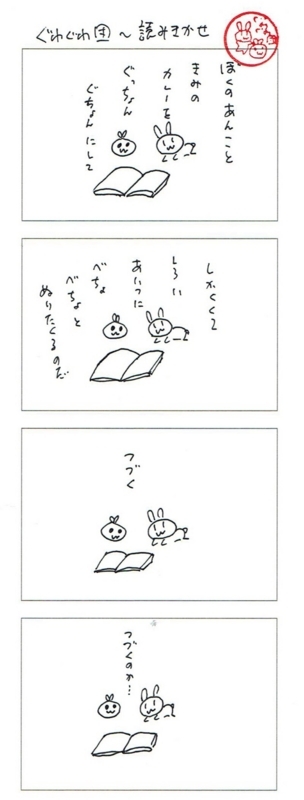 ぐわぐわ団～読みきかせ
ぼくのあんこと
きみの
カレーを
ぐっちょん
ぐちょんにして
しかくくて
しろい
あいつに
べちょ
べちょと
ぬりたくるのだ
つづく
つづくのか…